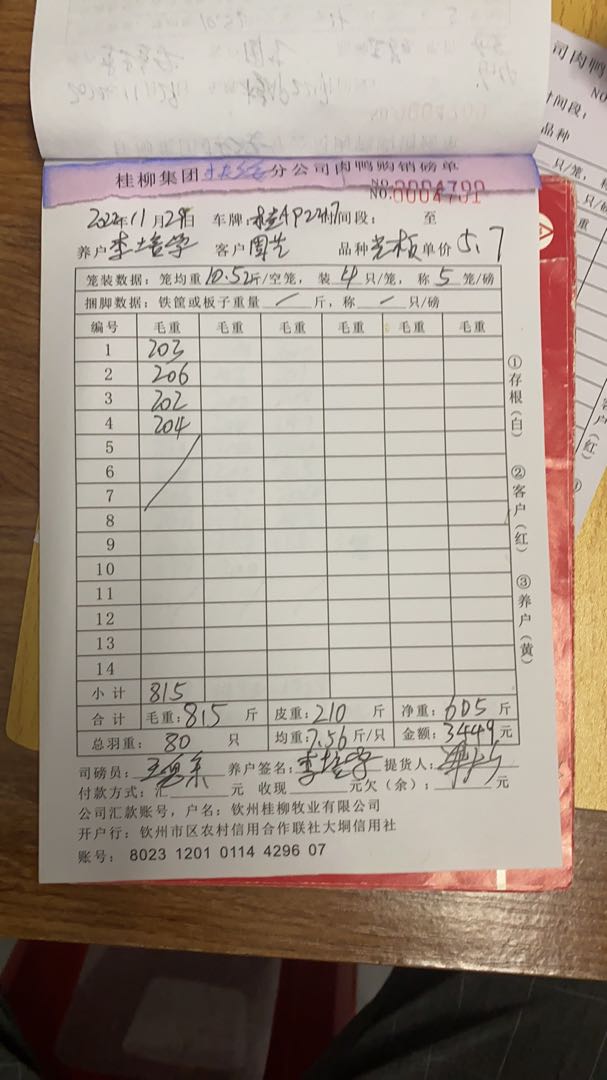 桂柳集团 分公司肉鸭购销磅单
NO.
NO.0004791
2022年11月29日 车牌:桂AP2247时间段: 至
养户李培学 客户周先 品种光板单价5.7
笼装数据:笼均重10.52斤/空笼,装4只/笼,称5笼/磅
捆脚数据:铁筐或板子重量/斤,称/只/磅
编号 毛重 毛重 毛重 毛重 毛重 毛重
1 203
2 206
3 202
4 204
5
6
7
8
9
10
11
12
13
14
小计 815
合计 毛重:815斤 皮重:210斤 净重:605斤
总羽重:80只 均重7.56斤/只 金额:3449元
司磅员: 养户签名:李培学 提货人:
付款方式:汇 元 收现 元欠(余): 元
公司汇款账号,户名:钦州桂柳牧业有限公司
开户行:钦州市区农村信用合作联社大垌信用社
账号:8023 1201 0114 4296 07
①存根(白)
②客户(红)
③养户(黄)
司肉鸭
NO
时间段:
品种
只/笼,
只/磅